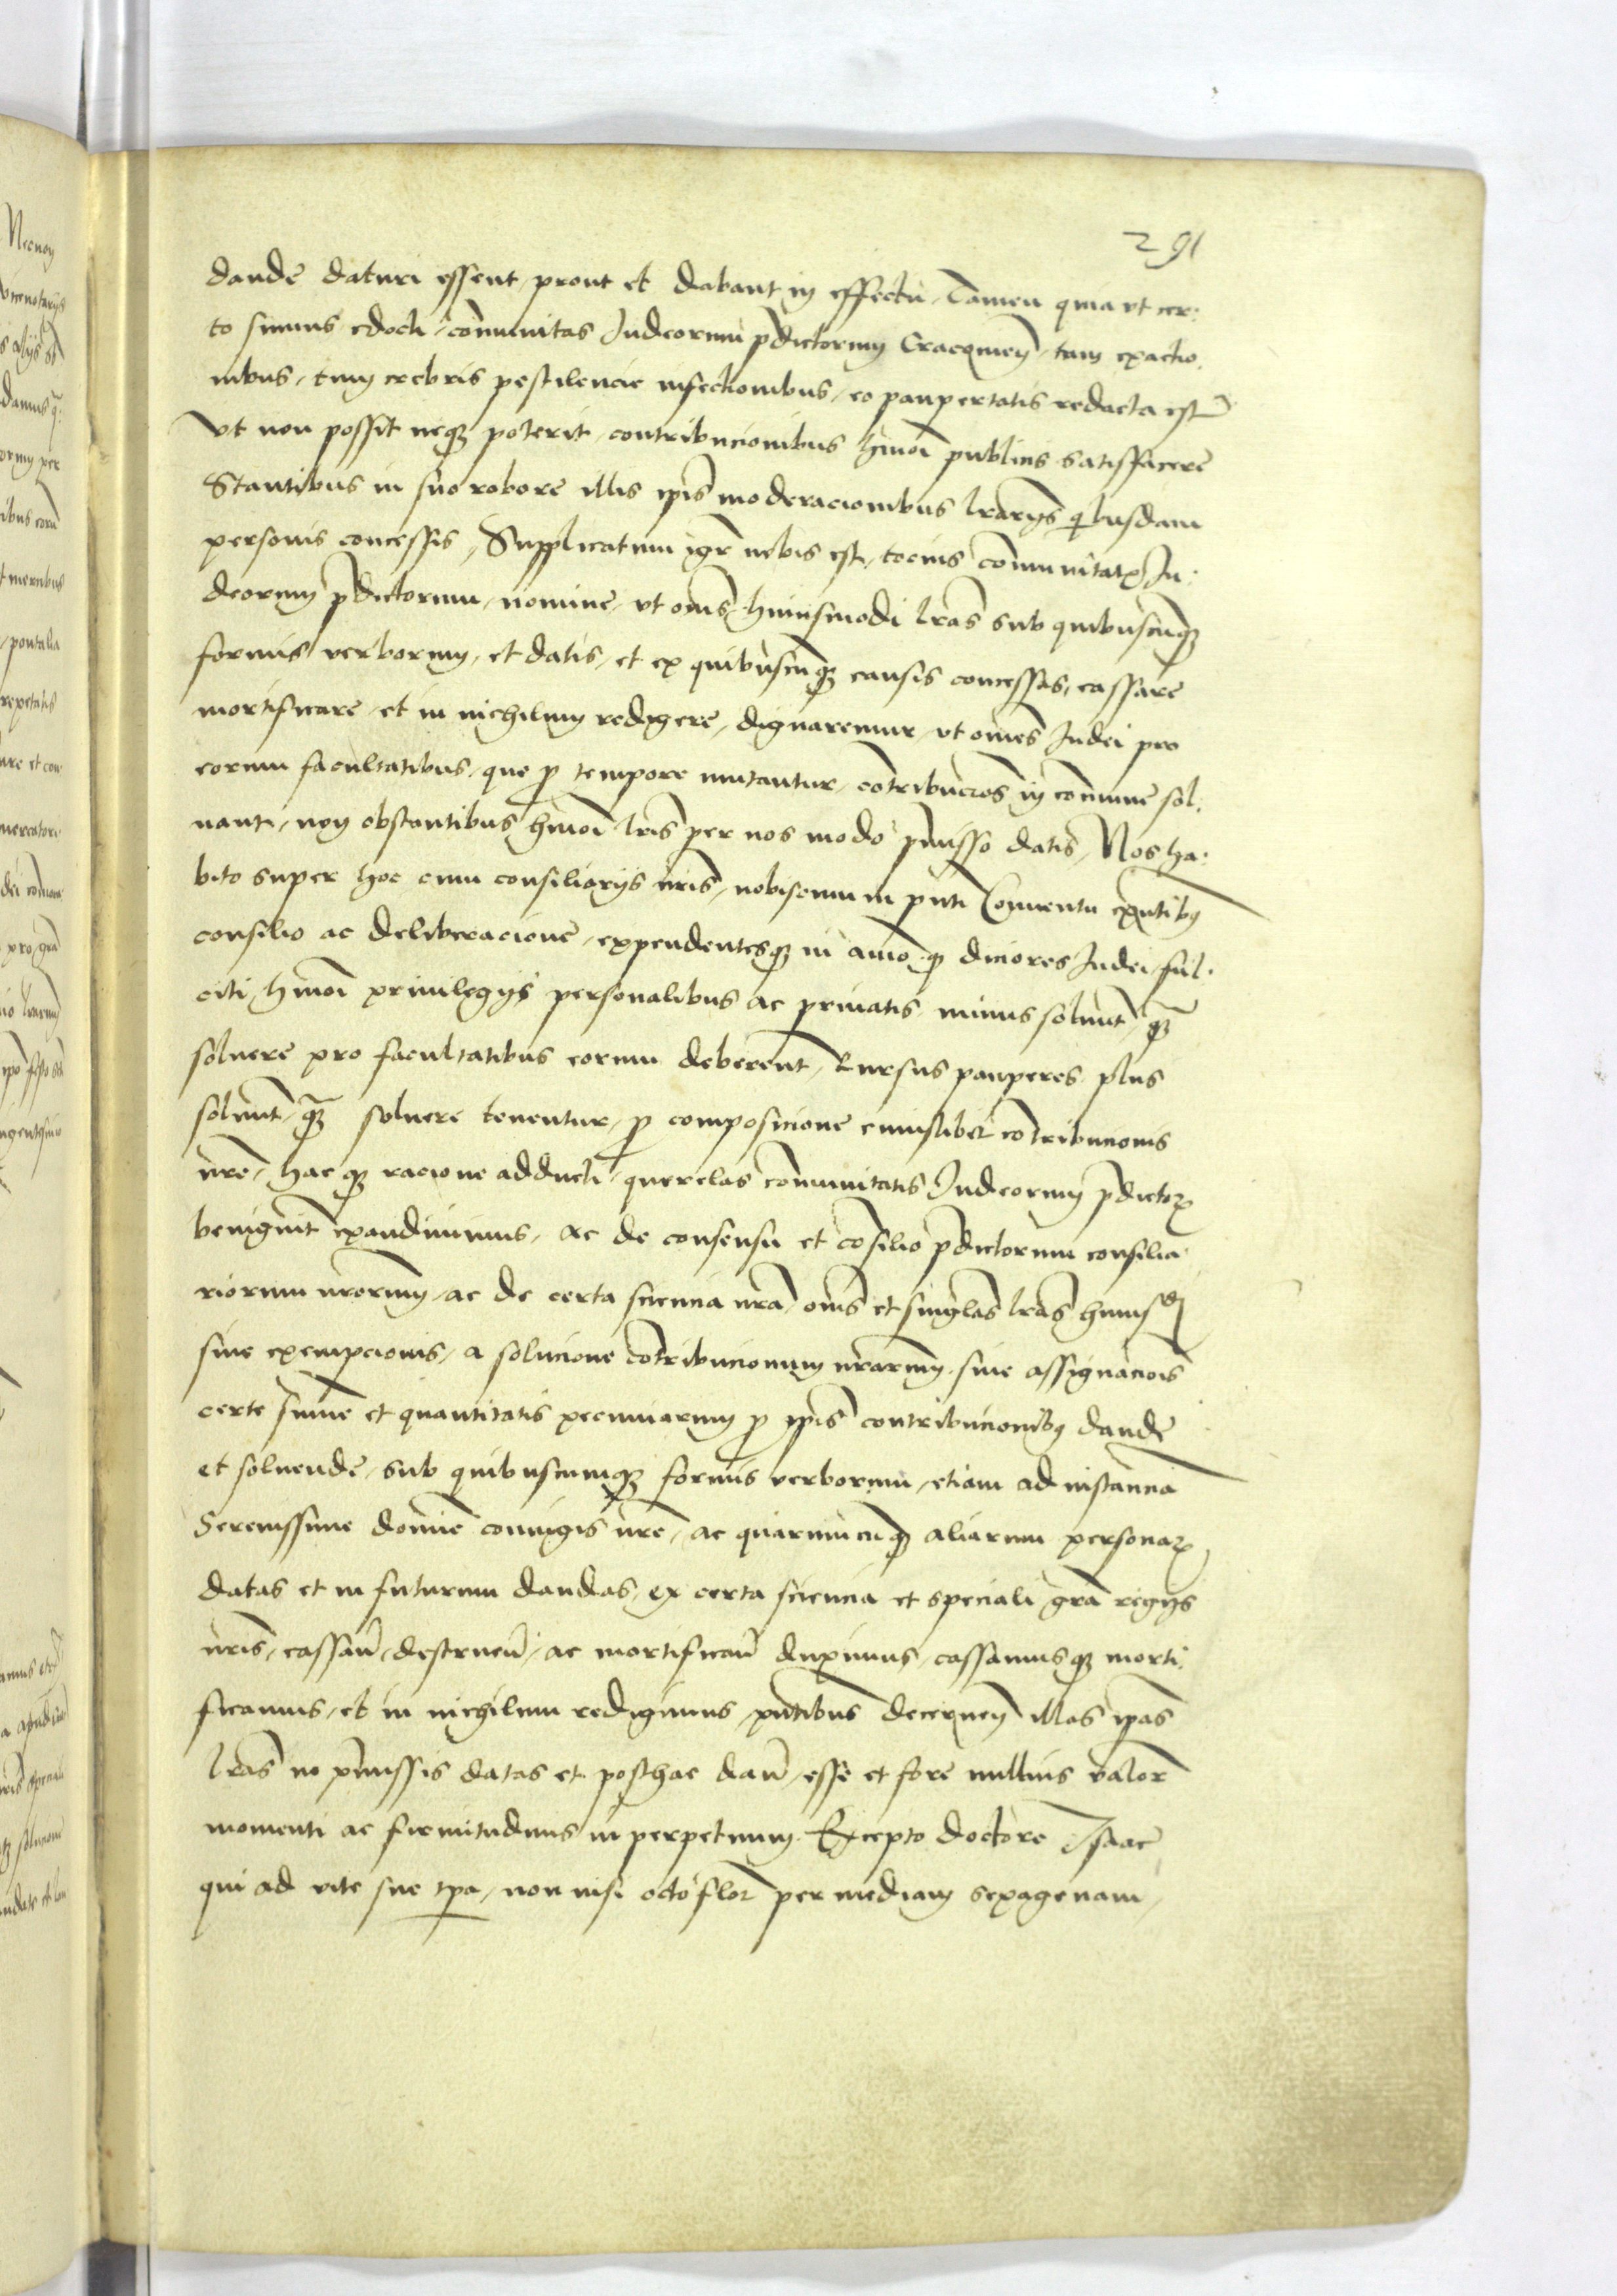 291
dande daturi essent, prout et dabant in effectu, Tamen quia vt cer:
to sumus edocti, cōmunitas Judeorum p̄dictorum Cracouieñ, tum exactio:
nibus, tum crebris pestilencie infectionibus, eo paupertatis redacta est
vt non possit neq3 poterit, contribucionibus hm̄oi publicis satisfacere
Stantibus in suo robore illis ip̄is moderacionibus l̄rarijs quibusdam
personis concessis, Supplicatum igr̄ nobis est, tocius cōmunitatis Ju:
deorum p̄dictorum, nomine, vt om̄s huiusmodi l̄ras sub quibuscūq3
formis verborum, et datis, et ex quibuscūq3 causis concessas, cassare
mortificare et in nichilum redigere, dignaremur, vt om̄es Judei pro
eorum facultatibus, que p̄ tempore mutantur, cōtribucōes in cōmune sol:
uant, non obstantibus hm̄oi l̄ris per nos modo p̄misso datis, Nos ha:
bito super hoc cum consiliarijs nr̄is, nobiscum in p̄nti Conuentu exn̄tib9
consilio ac deliberacione, expendentesq3 in aīo, q̄ diciores Judei ful:
citi hm̄oi priuilegijs personalibus ac priuatis minus soluūt, q̄3
soluere pro facultatibus eorum deberent, Rursus pauperes plus
soluūt, q̄3 soluere tenentur, p̄ composicione cuiuslibet cōtribucionis
nr̄e, hac q3 racione adducti, querelas cōmunitatis Judeorum p̄dictor̄
benigniť exaudiuimus, ac de consensu et cōsilio p̄dictorum consilia:
riorum nr̄orum, ac de certa sciencia nr̄a, om̄s et singl̄as l̄ras huiusm̄di
siue exempcionis, a solucione cōtribucionum nr̄arum, siue assignacōis
certe sūme et quantitatis pecuniarum p̄ ip̄is contribucionib9 dande
et soluende, sub quibuscumq3 formis verborum, etiam ad instancia
Serenissime domīe coniugis nr̄e, ac quarumcūq3 aliarum personar̄
datas et in futurum dandas, ex certa sciencia et speciali gr̄a regijs
nr̄is, cassañ, destrueñ, ac mortificañ duximus, cassamusq3 morti:
ficamus, et in nichilum redigimus, p̄ntibus decerneñ illas ip̄as
l̄ras vt p̄missis datas et posthac dañ, esse et fore nullius valor̄
momenti ac firmitudinis in perpetuum. Excepto doctore Isaac
qui ad vite sue tp̄a, non nisi octo flor̄ per mediam sexagenam,